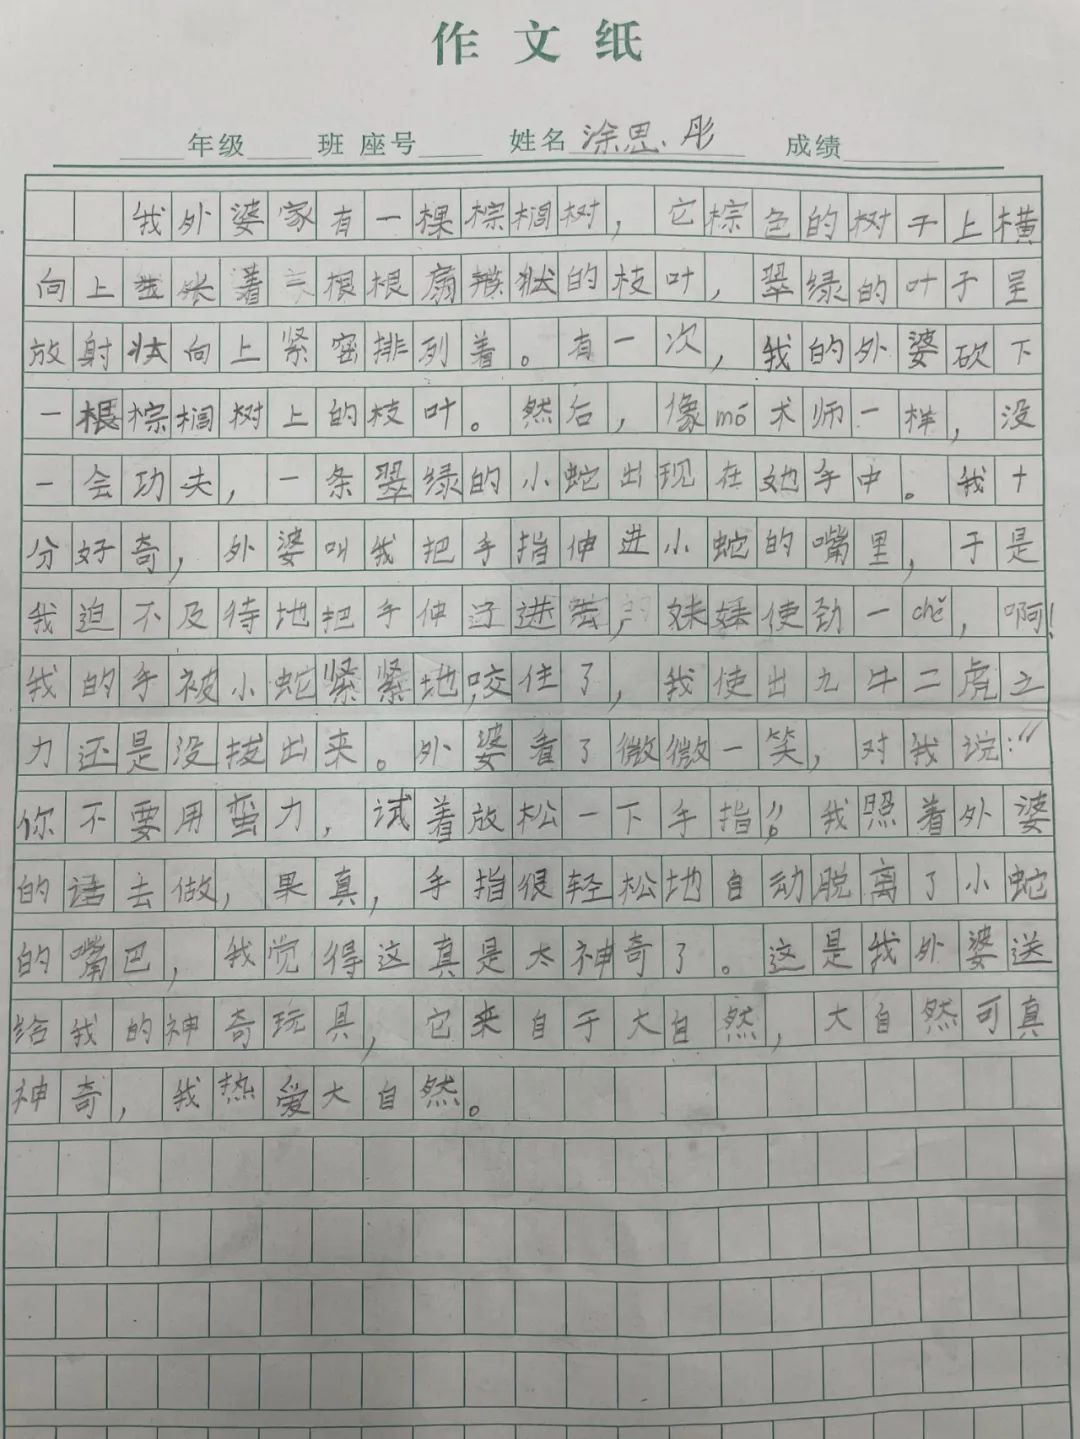 作文纸
年级 班 座号 姓名 涂思彤 成绩
我外婆家有一棵棕榈树，它棕色的树干上横
向上 张着 根根扇 状的枝叶，翠绿的叶子呈
放射状向上紧密排列着。有一次，我的外婆砍下
一根棕榈树上的枝叶。然后，像mó术师一样，没
一会功夫，一条翠绿的小蛇出现在她手中。我十
分好奇，外婆叫我把手指伸进小蛇的嘴里，于是
我迫不及待地把手伸了进去，妹妹使劲一chě，啊！
我的手被小蛇紧紧地咬住了，我使出九牛二虎之
力还是没拔出来。外婆看了微微一笑，对我说：“
你不要用蛮力，试着放松一下手指”。我照着外婆
的话去做，果真，手指很轻松地自动脱离了小蛇
的嘴巴，我觉得这真是太神奇了。这是我外婆送
给我的神奇玩具，它来自于大自然，大自然可真
神奇，我热爱大自然。